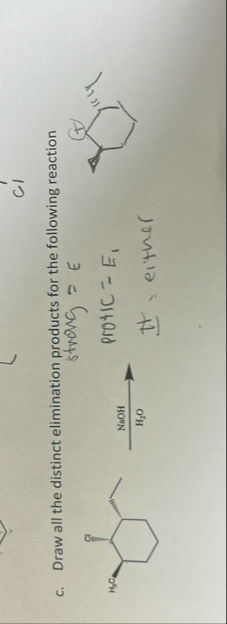 Cl
c. Draw all the distinct elimination products for the following reaction
strong = E
protic = E1
II = either
NaOH
H2O
Cl
H3C
+